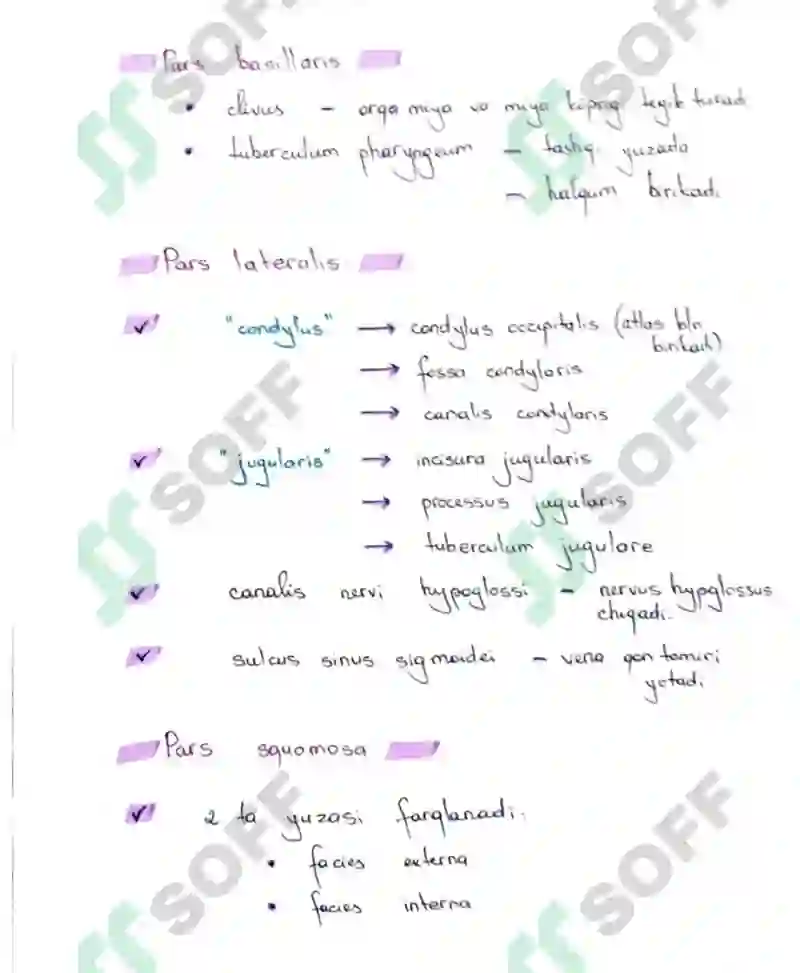 Pars basillaris
• clivus – orqa miya va miya ko'prig tegib turadi
• tuberculum pharyngeum – tashqi yuzada
– halqum birikadi.
Pars lateralis
✓ "condylus" → condylus occipitalis (atlas bln
birikadi)
→ fossa condylaris
→ canalis condylaris
✓ "jugularis" → incisura jugularis
→ processus jugularis
→ tuberculum jugulare
✓ canalis nervi hypoglossi – nervus hypglossus
chiqadi.
✓ sulcus sinus sigmoidei – vena qon tomiri
yotadi
Pars squamosa
✓ 2 ta yuzasi farqlanadi.
• facies externa
• facies interna
SOFF
SOFF
SOFF
SOFF
SOFF
SOFF